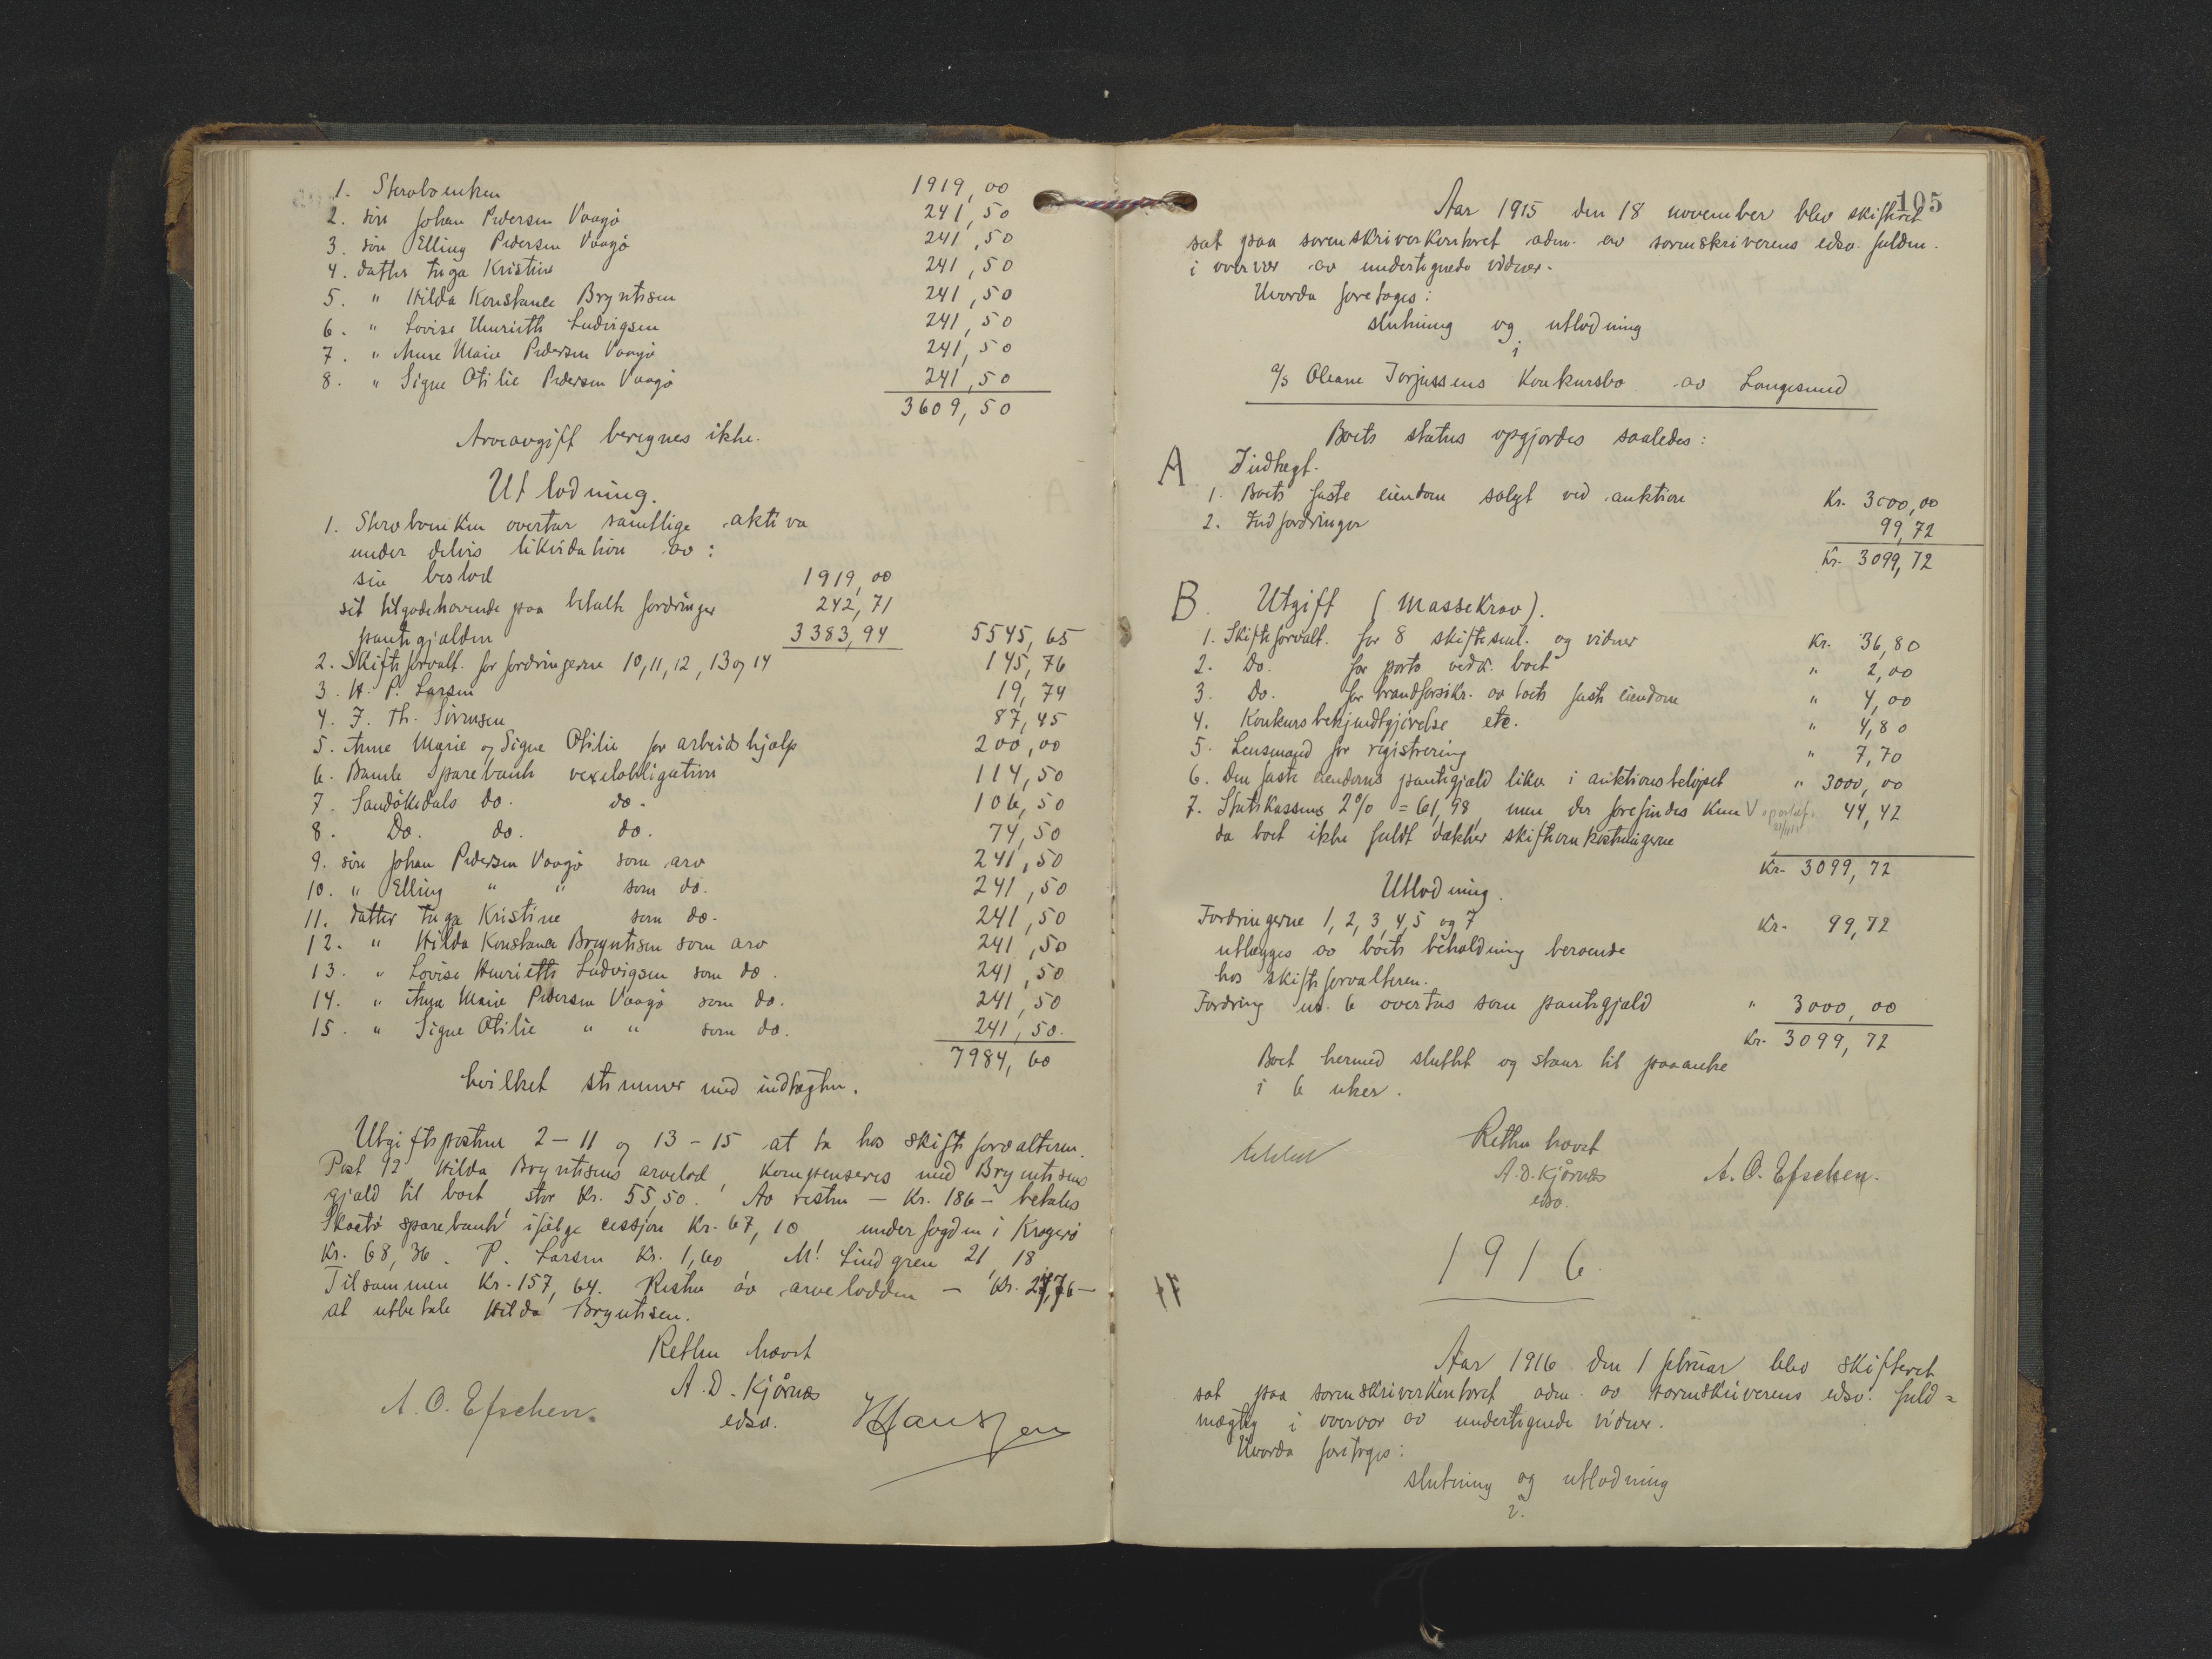 1. Sterboenken 1919,00
2. søn Johan Pedersen Vaagø 241,50
3. søn Elling Pedersen Vaagø 241,50
4. datter Inga Kristine 241,50
5. " Hilda Konstance Bryntisen 241,50
6. " Lovise Henriette Ludvigsen 241,50
7. " Anne Marie Pedersen Vaagø 241,50
8. " Signe Otilie Pedersen Vaagø 241,50
3609,50
Arveavgift beregnes ikke.
Utlodning.
1. Sterboenken overtar samtlige aktiva
under delvis likvidation av:
sin boslod 1919,00
sit tilgodehavende paa betalte fordringer 242,71
pantegjælden 3383,94 5545,65
2. Skifteforvalt. for fordringerne 10, 11, 12, 13 og 14 145,76
3. H. P. Larsen 19,74
4. J. Th. Sørensen 87,45
5. Anne Marie og Signe Otilie for arbeidshjælp 200,00
6. Bamle Sparebank vexelobligation 114,50
7. Sandøkedals do. do. 106,50
8. Do. do. do. 74,50
9. søn Johan Pedersen Vaagø som arv 241,50
10. " Elling " " som do. 241,50
11. datter Inga Kristine som do. 241,50
12. " Hilda Konstance Bryntisen som arv 241,50
13. " Lovise Henriette Ludvigsen som do. 241,50
14. " Anne Marie Pedersen Vaagø som do. 241,50
15. " Signe Otilie " " som do. 241,50.
7984,60
hvilket stemmer med indtægten.
Utgiftsposterne 2-11 og 13-15 at ta hos skifteforvalteren.
Post 12 Hilda Bryntisens arvelod, kompenseres med Bryntisens
gjæld til boet, stor Kr. 55,50. Av resten - Kr. 186 - betales
Skaatø sparebank ifølge cessjon Kr. 67,10 underfogden i Kragerø
Kr. 68,36. P. Larsen Kr. 1,60 M. Lindgren 21,18
Tilsammen Kr. 157,64. Resten av arvelodden - Kr.
at utbetale Hilda Bryntisen.
Retten hævet
A. D. Kjørnæs
edsv.
A. O. Efschen. Hansen
105
Aar 1915 den 18 november blev skifteret
sat paa sorenskriverkontoret adm. av sorenskriverens edsv. fuldm.
i overvær av undertegnede vidner.
Hvorda foretoges:
slutning og utlodning
i
a/s Oleane Torjussens Konkursbo av Langesund
Boets status opgjordes saaledes:
A Indtægt.
1. Boets faste eiendom solgt ved auktion Kr. 3000,00
2. Indfordringer 99,72
Kr. 3099,72
B. Utgift (Massekrav).
1. Skifteforvalt. for 8 skiftesaml. og vidner Kr. 36,80
2. Do. for porto vedk. boet " 2,00
3. Do. for brandforsikr. av boets faste eiendom " 4,00
4. Konkursbekjendtgjørelse etc. " 4,80
5. Lensmand for registrering " 7,70
6. Den faste eiendoms pantegjæld like i auktionsbeløpet " 3000,00
7. Statskassens 2% = 61,98, men der forefindes kun V 44,42
da boet ikke fuldt dækker skifteomkostningerne
Kr. 3099,72
Utlodning.
Fordringerne 1, 2, 3, 4, 5 og 7 Kr. 99,72
utlægges av boets beholdning beroende
hos skifteforvalteren.
Fordring nr. 6 overtas som pantegjæld " 3000,00
Kr. 3099,72
Boet hermed sluttet og staar til paaanke
i 6 uker.
Retten hævet
A. D. Kjørnæs
edsv.
A. O. Efschen.
1916.
Aar 1916 den 1 februar blev skifteret
sat paa sorenskriverkontoret adm. av sorenskriverens edsv. fuld=
mægtig i overvær av undertegnede vidner.
Hvorda foretoges:
slutning og utlodning
i.